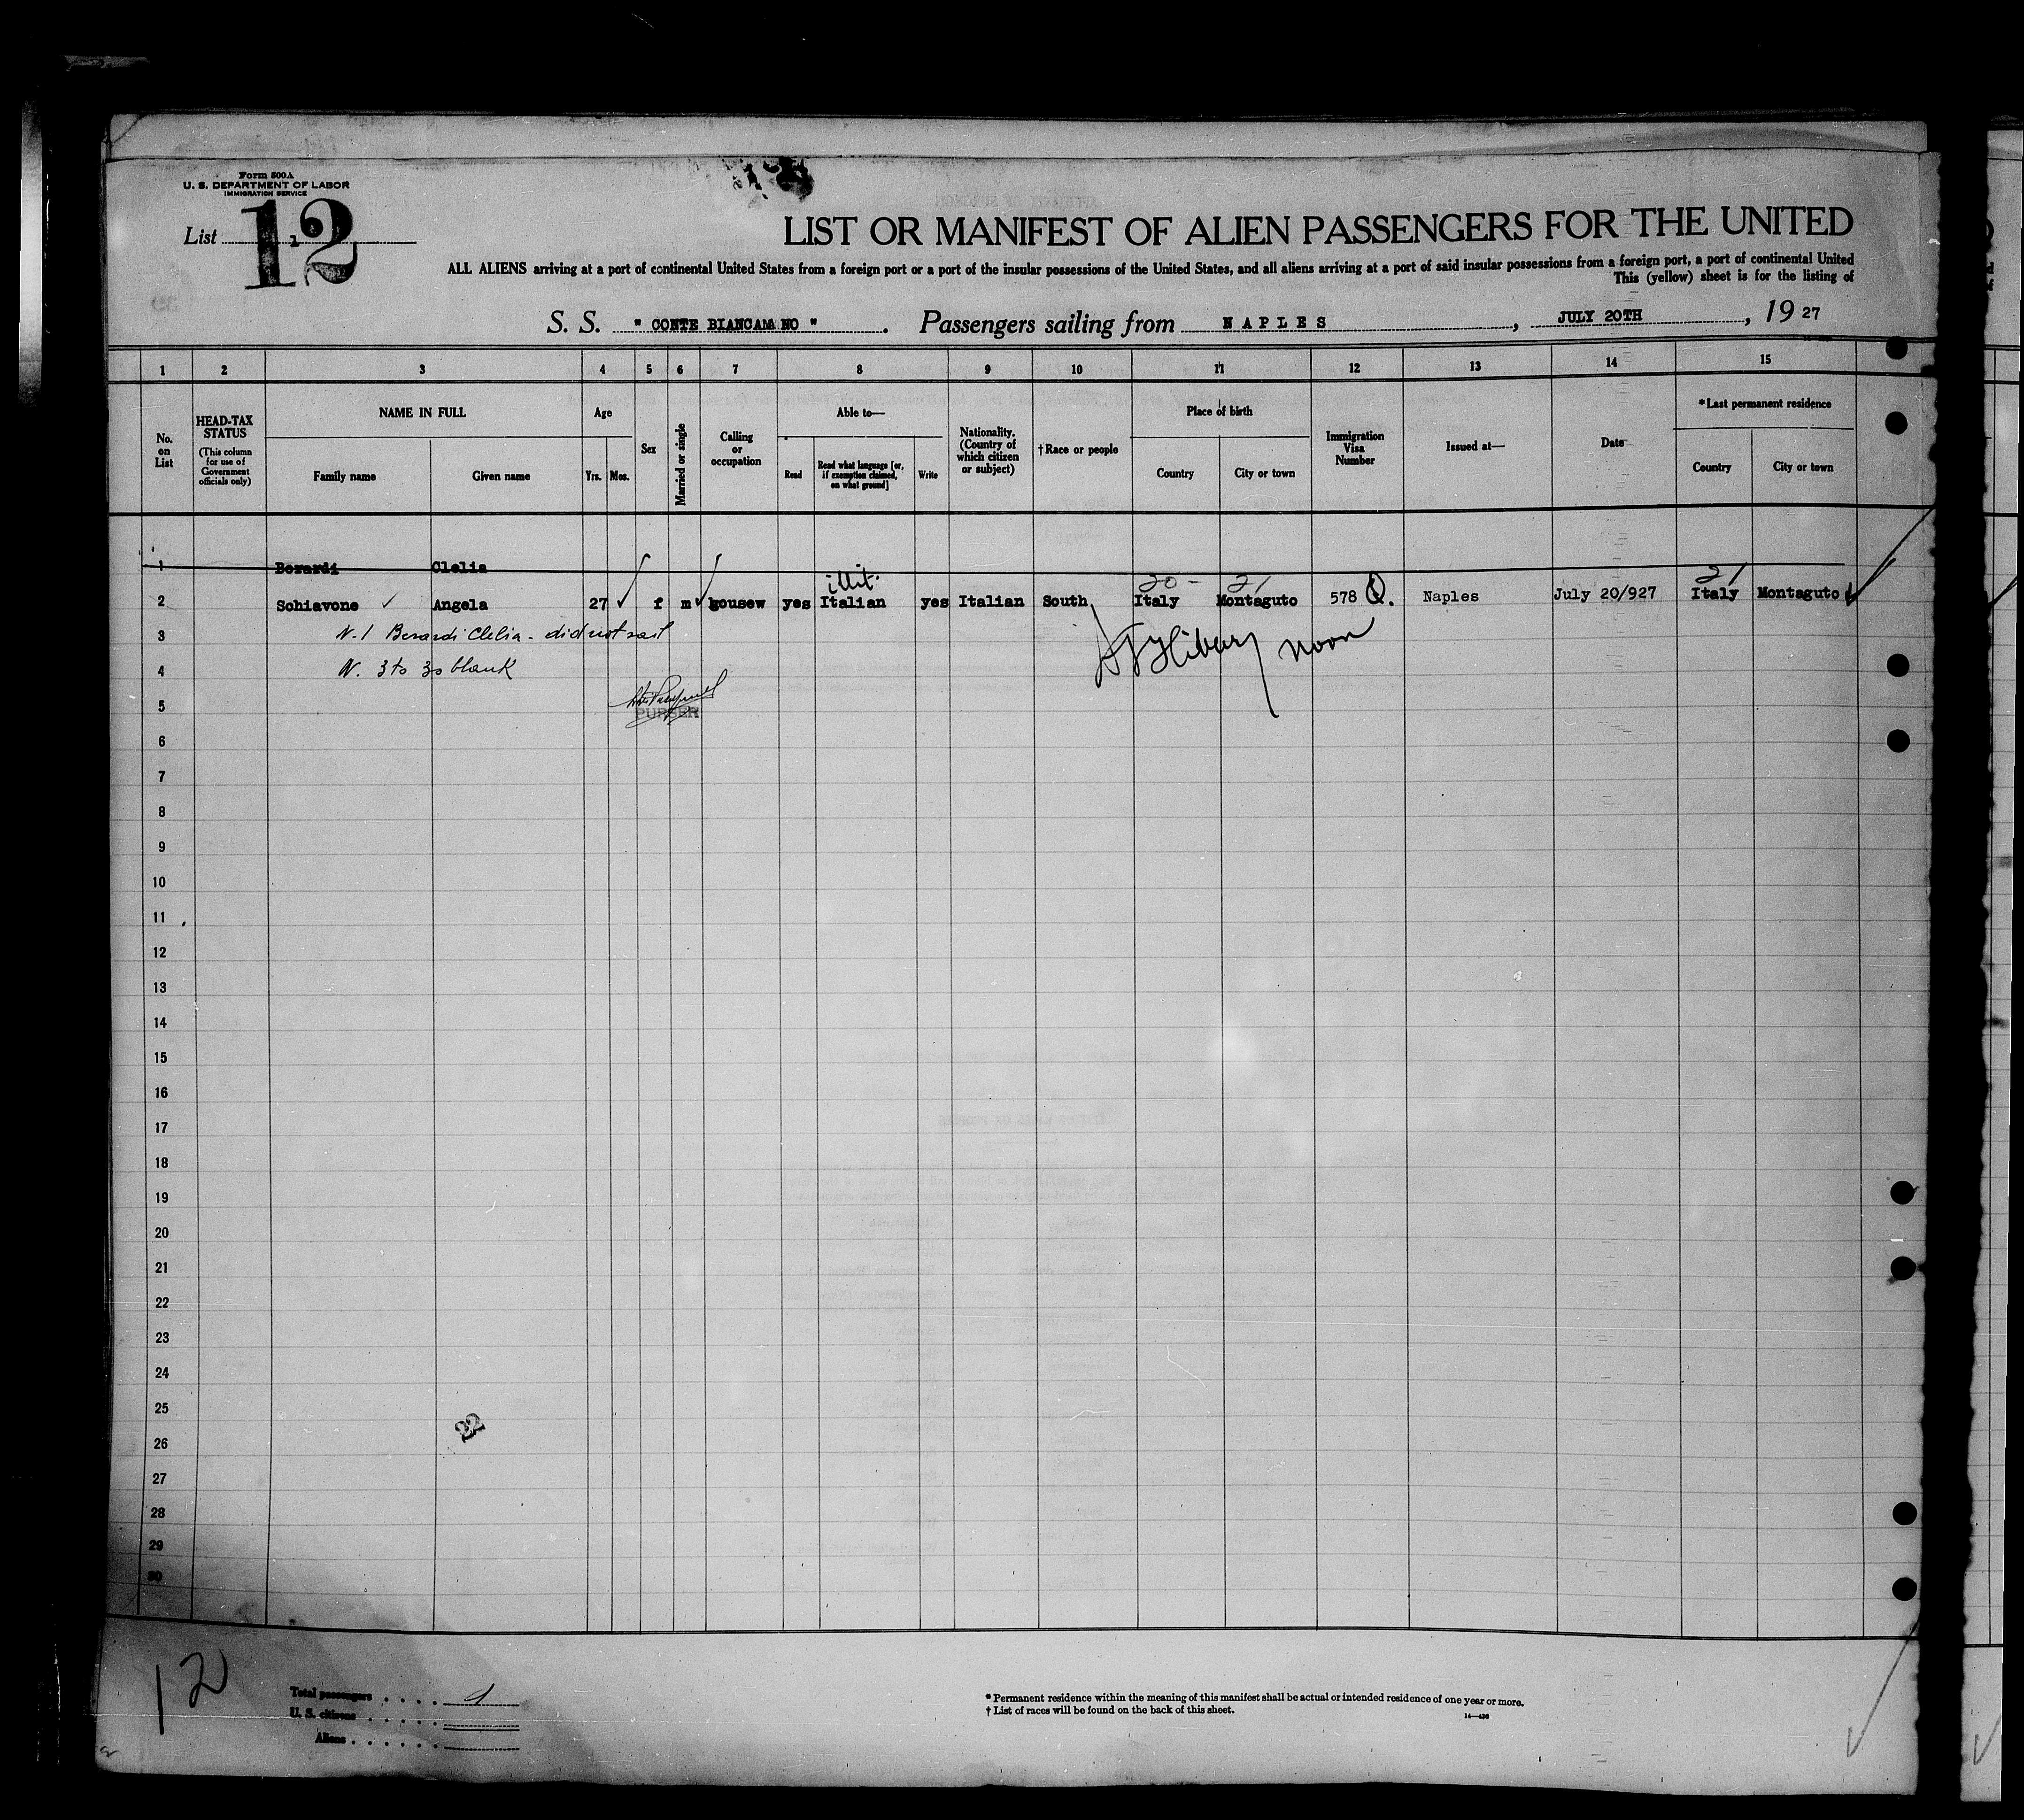 Form 500A
U. S. DEPARTMENT OF LABOR
IMMIGRATION SERVICE
List 12
LIST OR MANIFEST OF ALIEN PASSENGERS FOR THE UNITED
ALL ALIENS arriving at a port of continental United States from a foreign port or a port of the insular possessions of the United States, and all aliens arriving at a port of said insular possessions from a foreign port, a port of continental United
This (yellow) sheet is for the listing of
S. S. " CONTE BIANCAMANO " . Passengers sailing from NAPLES , JULY 20TH , 19 27
1 2 3 4 5 6 7 8 9 10 11 12 13 14 15
No. on List
HEAD-TAX STATUS (This column for use of Government officials only)
NAME IN FULL
Family name Given name
Age
Yrs. Mos.
Sex
Married or single
Calling or occupation
Able to—
Read
Read what language [or, if exemption claimed, on what ground]
Write
Nationality. (Country of which citizen or subject)
†Race or people
Place of birth
Country City or town
Immigration Visa Number
Issued at—
Date
*Last permanent residence
Country City or town
1 Berardi Clelia
illit. 20 - 21 21
2 Schiavone Angela 27 f m housew yes Italian yes Italian South Italy Montaguto 578 Q. Naples July 20/927 Italy Montaguto
3 N. 1 Berardi Clelia - did not sail
noon
4 N. 3 to 30 blank
5 PURSER
6
7
8
9
10
11
12
13
14
15
16
17
18
19
20
21
22
23
24
25
26
27
28
29
30
12
Total passengers . . . . 1
U. S. citizens . . . . .
Aliens . . . . . .
* Permanent residence within the meaning of this manifest shall be actual or intended residence of one year or more.
† List of races will be found on the back of this sheet.
14—430